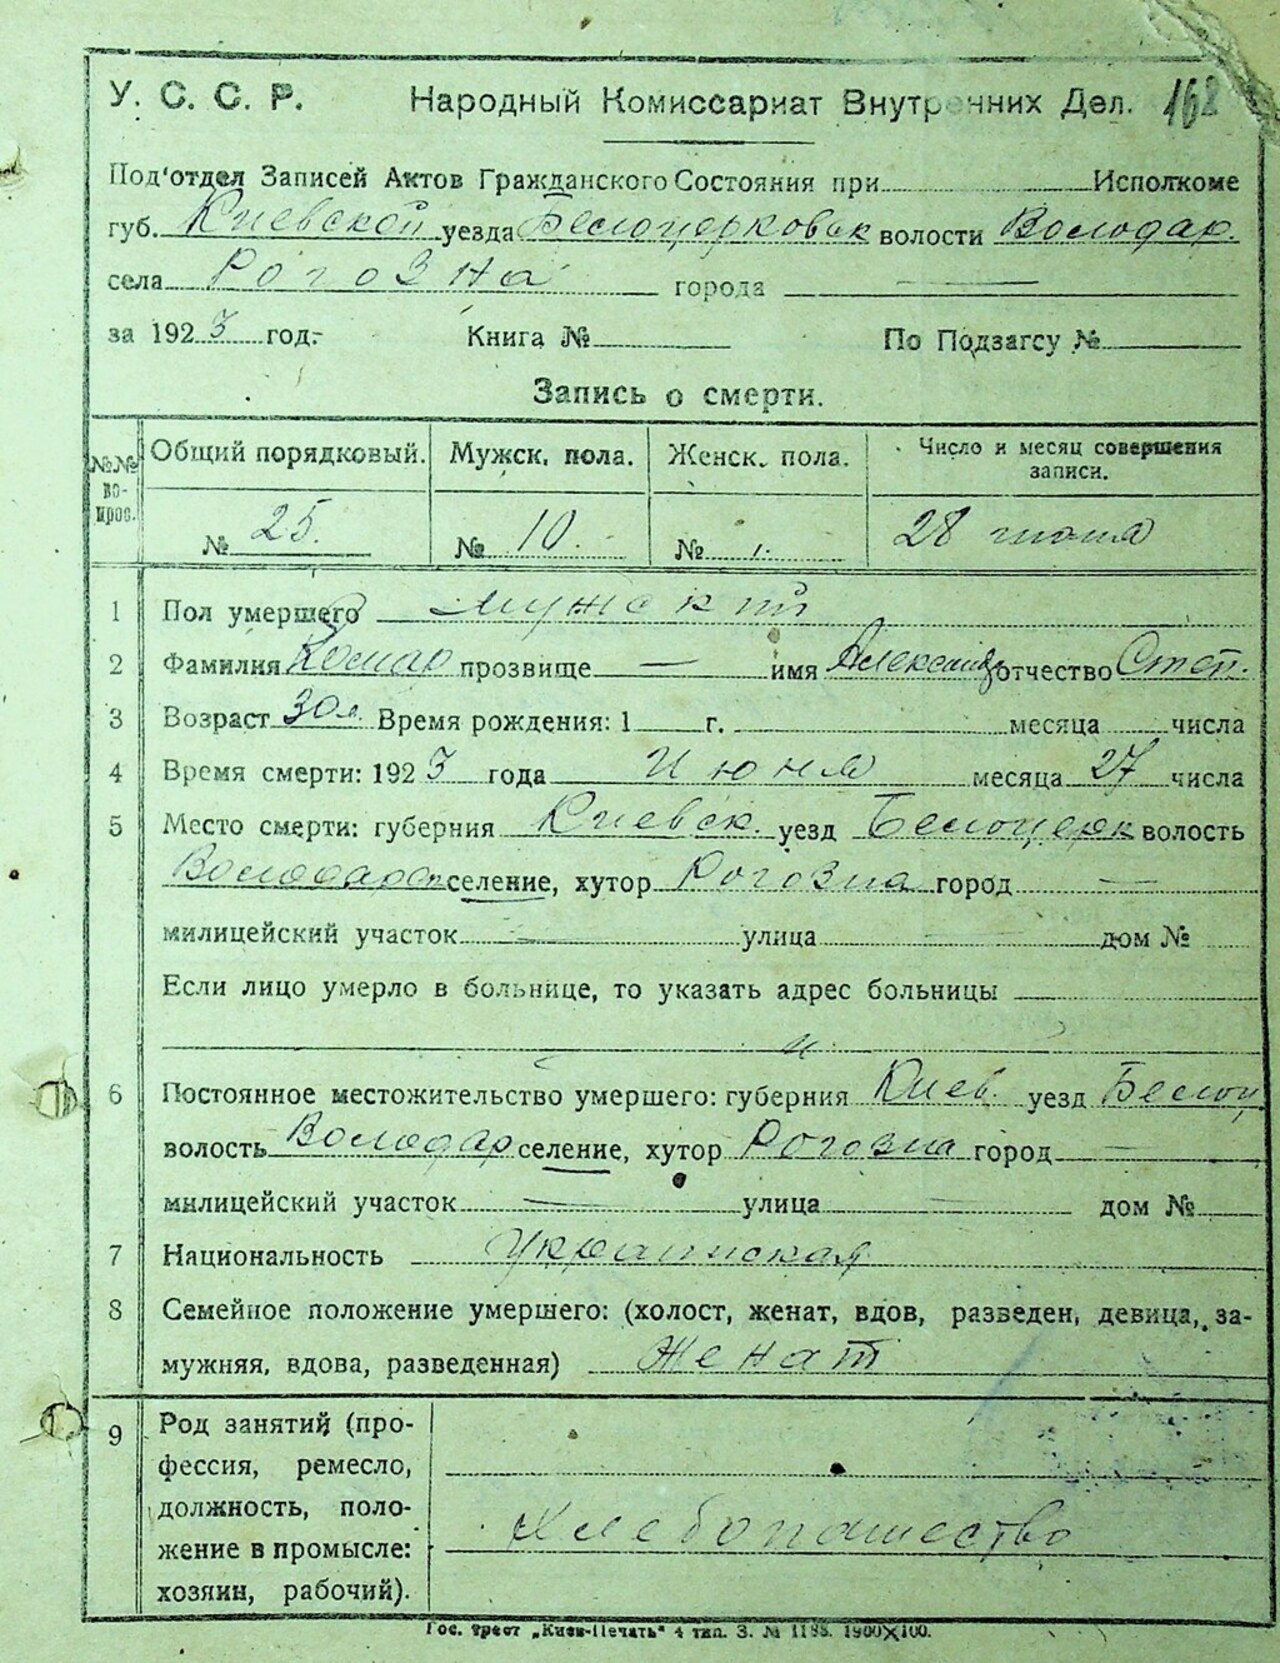 У. С. С. Р. Народный Комиссариат Внутренних Дел. 168
Под'отдел Записей Актов Гражданского Состояния при Исполкоме
губ. Киевской уезда Белоцерковск волости Володар.
села Рогозна города —
за 1923 год. Книга № По Подзагсу №
Запись о смерти.
№№ вопрос. Общий порядковый. Мужск. пола. Женск. пола. Число и месяц совершения записи.
№ 25. № 10. № 28 июня
1 Пол умершего мужский
2 Фамилия Комар прозвище — имя Александр отчество Степ.
3 Возраст 30 л. Время рождения: 1 г. месяца числа
4 Время смерти: 1923 года Июня месяца 27 числа
5 Место смерти: губерния Киевск. уезд Белоцерк волость
Володарск селение, хутор Рогозна город —
милицейский участок — улица — дом №
Если лицо умерло в больнице, то указать адрес больницы
6 Постоянное местожительство умершего: губерния Киев. уезд Белоц
волость Володар селение, хутор Рогозна город —
милицейский участок — улица — дом №
7 Национальность Украинская
8 Семейное положение умершего: (холост, женат, вдов, разведен, девица, за-
мужняя, вдова, разведенная) Женат
9 Род занятий (про-
фессия, ремесло,
должность, поло-
жение в промысле:
хозяин, рабочий).
Хлебопашество
Гос. трест „Киев-Печать“ 4 тип. З. № 1198. 1900X100.